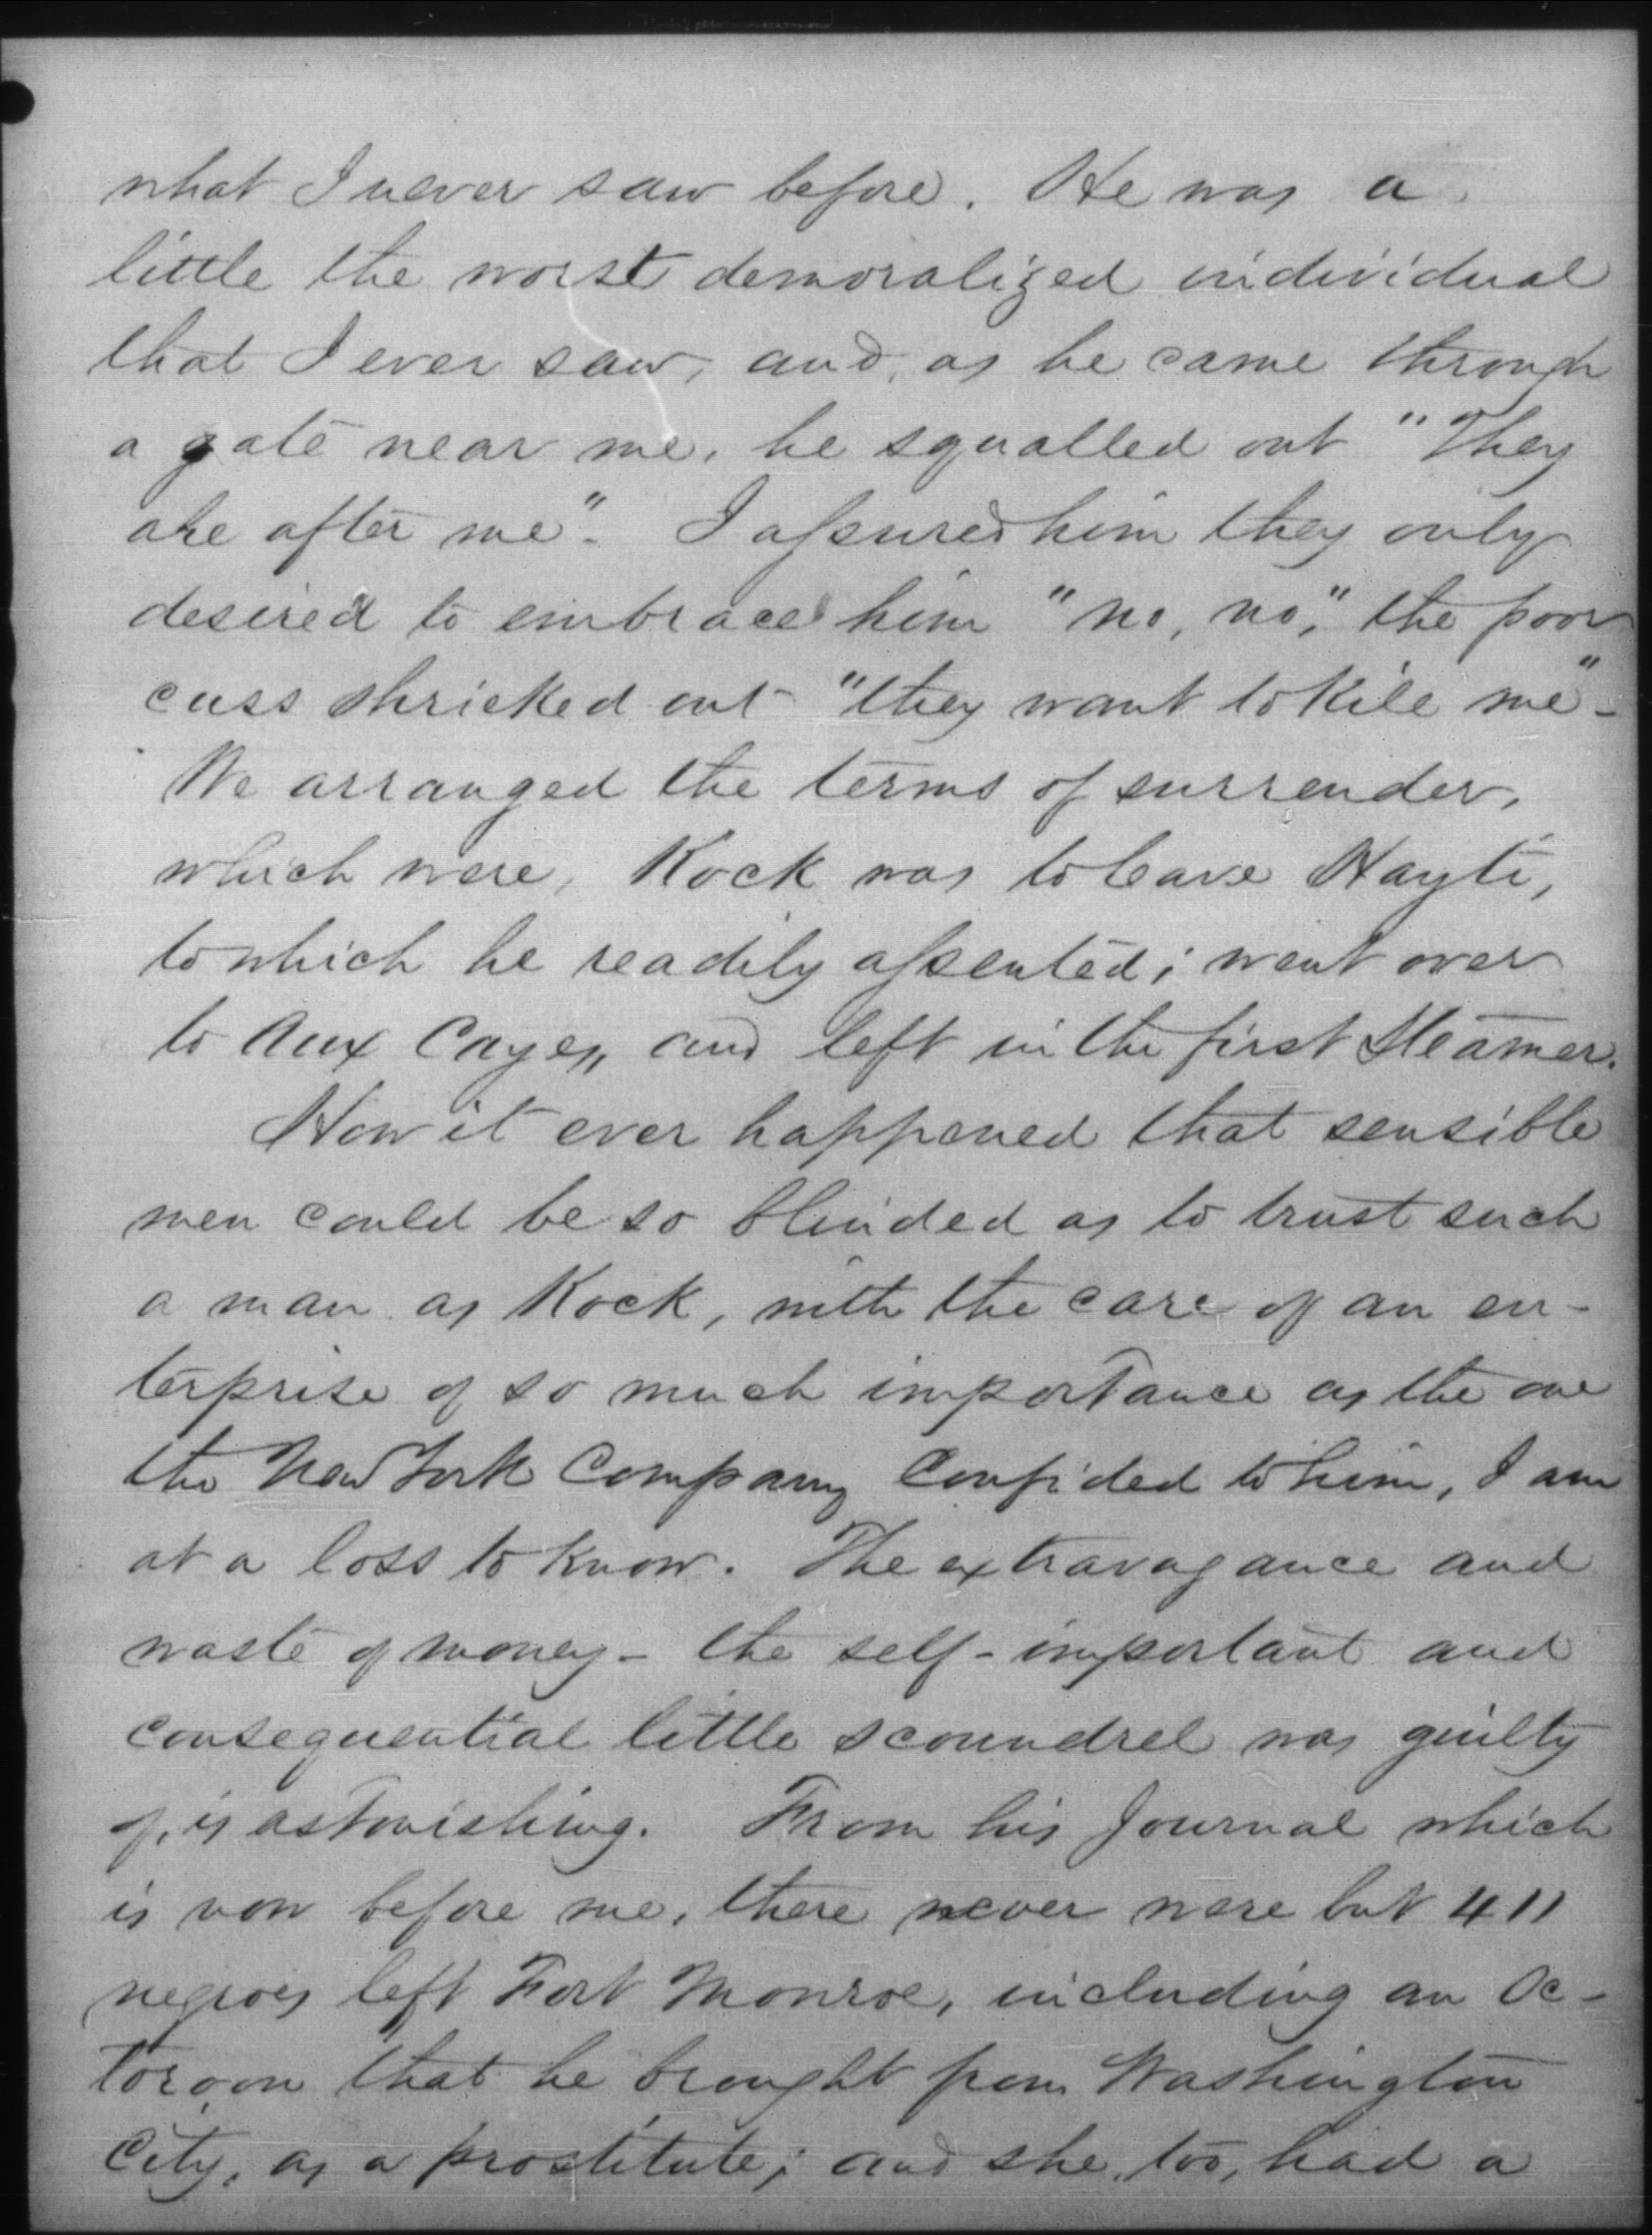 what I never saw before. He was a
little the worst demoralized individual
that I ever saw, and, as he came through
a gate near me, he squalled out "They
are after me". I assured him they only
desired to embrace him "no, no," the poor
cuss shrieked out "they want to kill me"-
We arranged the terms of surrender,
which were, Kock was to leave Hayti,
to which he readily assented; went over
to Aux Cayes, and left in the first Steamer.
How it ever happened that sensible
men could be so blinded as to trust such
a man as Kock, with the care of an en-
terprise of so much importance as the one
the New York Company confided to him, I am
at a loss to know. The extravagance and
waste of money - the self-important and
consequential little scoundrel was guilty
of, is astonishing. From his Journal which
is now before me, there never were but 411
negroes left Fort Monroe, including an Oc-
toroon that he brought from Washington
City, as a prostitute; and she, too, had a